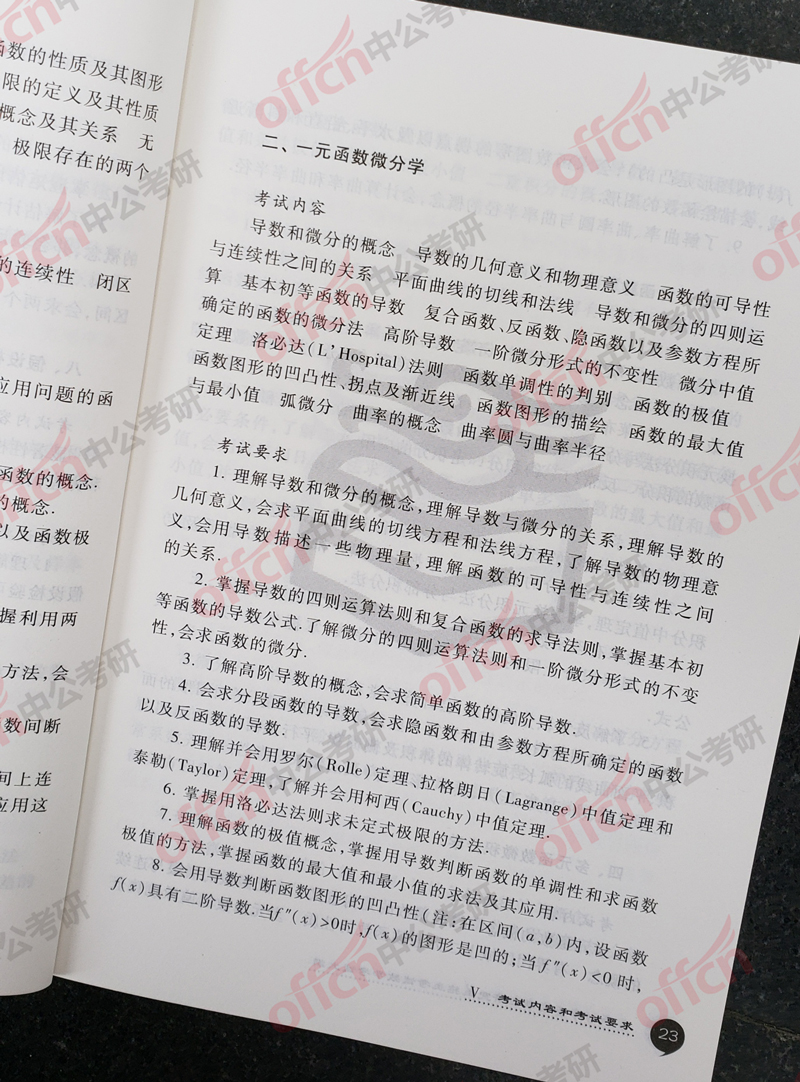 函数的性质及其图形
限的定义及其性质
概念及其关系 无
极限存在的两个
的连续性 闭区
应用问题的函
函数的概念.
的概念.
以及函数极
握利用两
方法,会
数间断
间上连
应用这
二、一元函数微分学
考试内容
导数和微分的概念 导数的几何意义和物理意义 函数的可导性
与连续性之间的关系 平面曲线的切线和法线 导数和微分的四则运
算 基本初等函数的导数 复合函数、反函数、隐函数以及参数方程所
确定的函数的微分法 高阶导数 一阶微分形式的不变性 微分中值
定理 洛必达(L'Hospital)法则 函数单调性的判别 函数的极值
函数图形的凹凸性、拐点及渐近线 函数图形的描绘 函数的最大值
与最小值 弧微分 曲率的概念 曲率圆与曲率半径
考试要求
1. 理解导数和微分的概念,理解导数与微分的关系,理解导数的
几何意义,会求平面曲线的切线方程和法线方程,了解导数的物理意
义,会用导数描述一些物理量,理解函数的可导性与连续性之间
的关系.
2. 掌握导数的四则运算法则和复合函数的求导法则,掌握基本初
等函数的导数公式.了解微分的四则运算法则和一阶微分形式的不变
性,会求函数的微分.
3. 了解高阶导数的概念,会求简单函数的高阶导数.
4. 会求分段函数的导数,会求隐函数和由参数方程所确定的函数
以及反函数的导数.
5. 理解并会用罗尔(Rolle)定理、拉格朗日(Lagrange)中值定理和
泰勒(Taylor)定理,了解并会用柯西(Cauchy)中值定理.
6. 掌握用洛必达法则求未定式极限的方法.
7. 理解函数的极值概念,掌握用导数判断函数的单调性和求函数
极值的方法,掌握函数的最大值和最小值的求法及其应用.
8. 会用导数判断函数图形的凹凸性(注:在区间(a,b)内,设函数
f(x)具有二阶导数.当f″(x)>0时,f(x)的图形是凹的;当f″(x)<0时,
Ⅴ 考试内容和考试要求
23
offcn中公考研